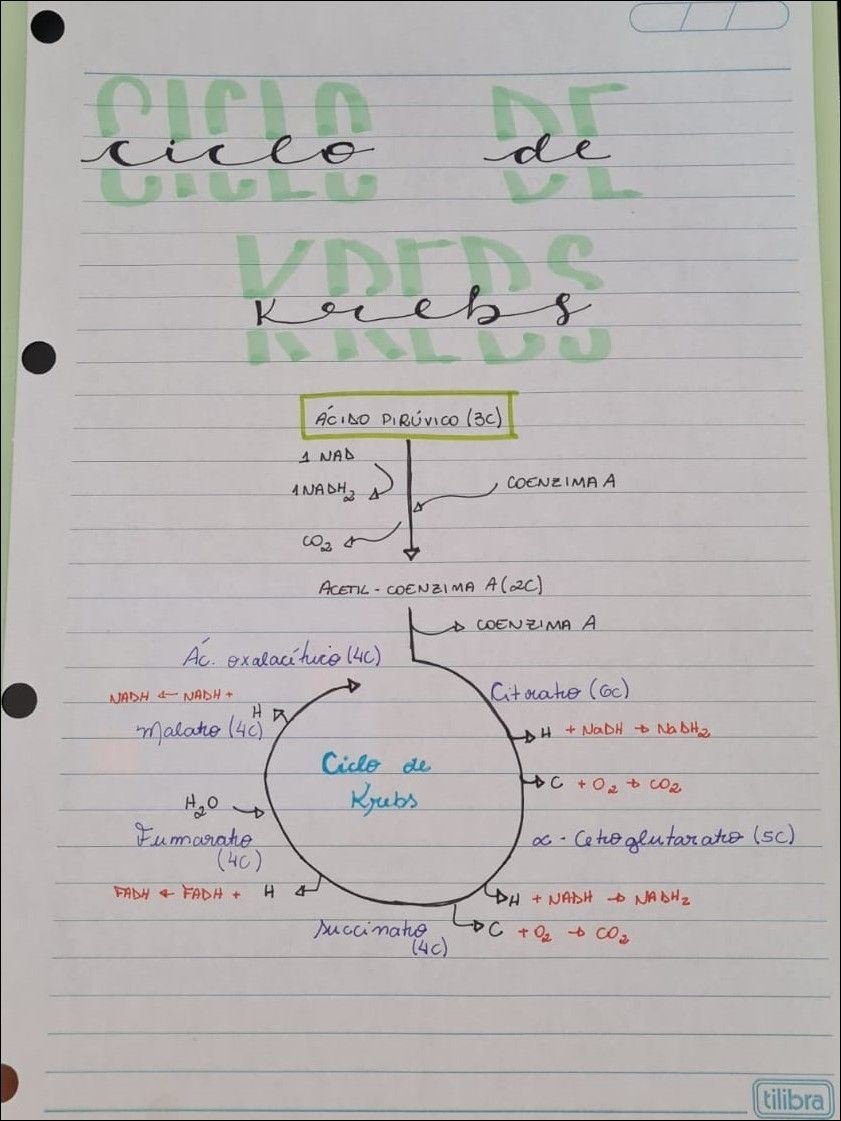 CICLO DE
ciclo de
KREBS
Krebs
ÁCIDO PIRÚVICO (3C)
1 NAD
1NADH₂
COENZIMA A
CO₂
ACETIL - COENZIMA A (2C)
COENZIMA A
Ác. oxalacético (4C)
Citrato (6C)
NADH ← NADH +
H
Malato (4C)
H + NADH → NADH₂
Ciclo de
Krebs
C + O₂ → CO₂
H₂O
Fumarato
(4C)
α - Cetoglutarato (5C)
FADH ← FADH + H
H + NADH → NADH₂
Succinato
(4C)
C + O₂ → CO₂
tilibra